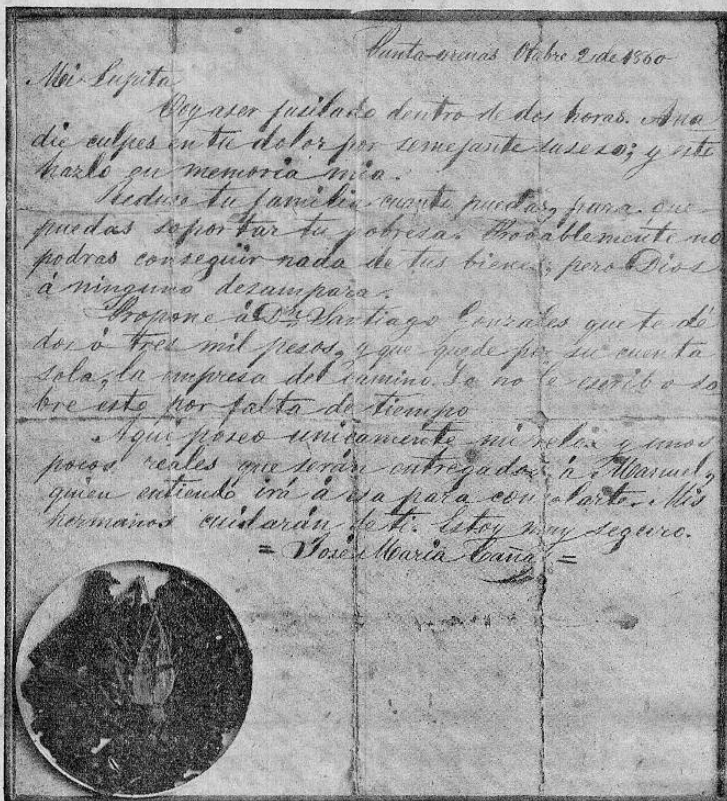 Punta-arenas Otabre 2 de 1860
Mi Lupita
Voy aser fusilado dentro de dos horas. Ana
die culpes en tu dolor por semejante suseso; y este
hazlo en memoria mia.
Reduse tu familia cuanto puedas, para que
puedas soportar tu pobresa. Probablemente no
podras conseguir nada de tus bienes; pero Dios
á ninguno desampara.
Propone á Dn Santiago Gonzales que te dé
dos ó tres mil pesos, y que quede por su cuenta
sola, la empresa del camino. Yo no le escribo so
bre esto por falta de tiempo
Aqui poseo unicamente mi relox y unos
pocos reales que serán entregados á Manuel,
quien entiendo irá á esa para consolarte. Mis
hermanos cuidarán de ti. Estoy muy seguro.
= José Maria Cañas =